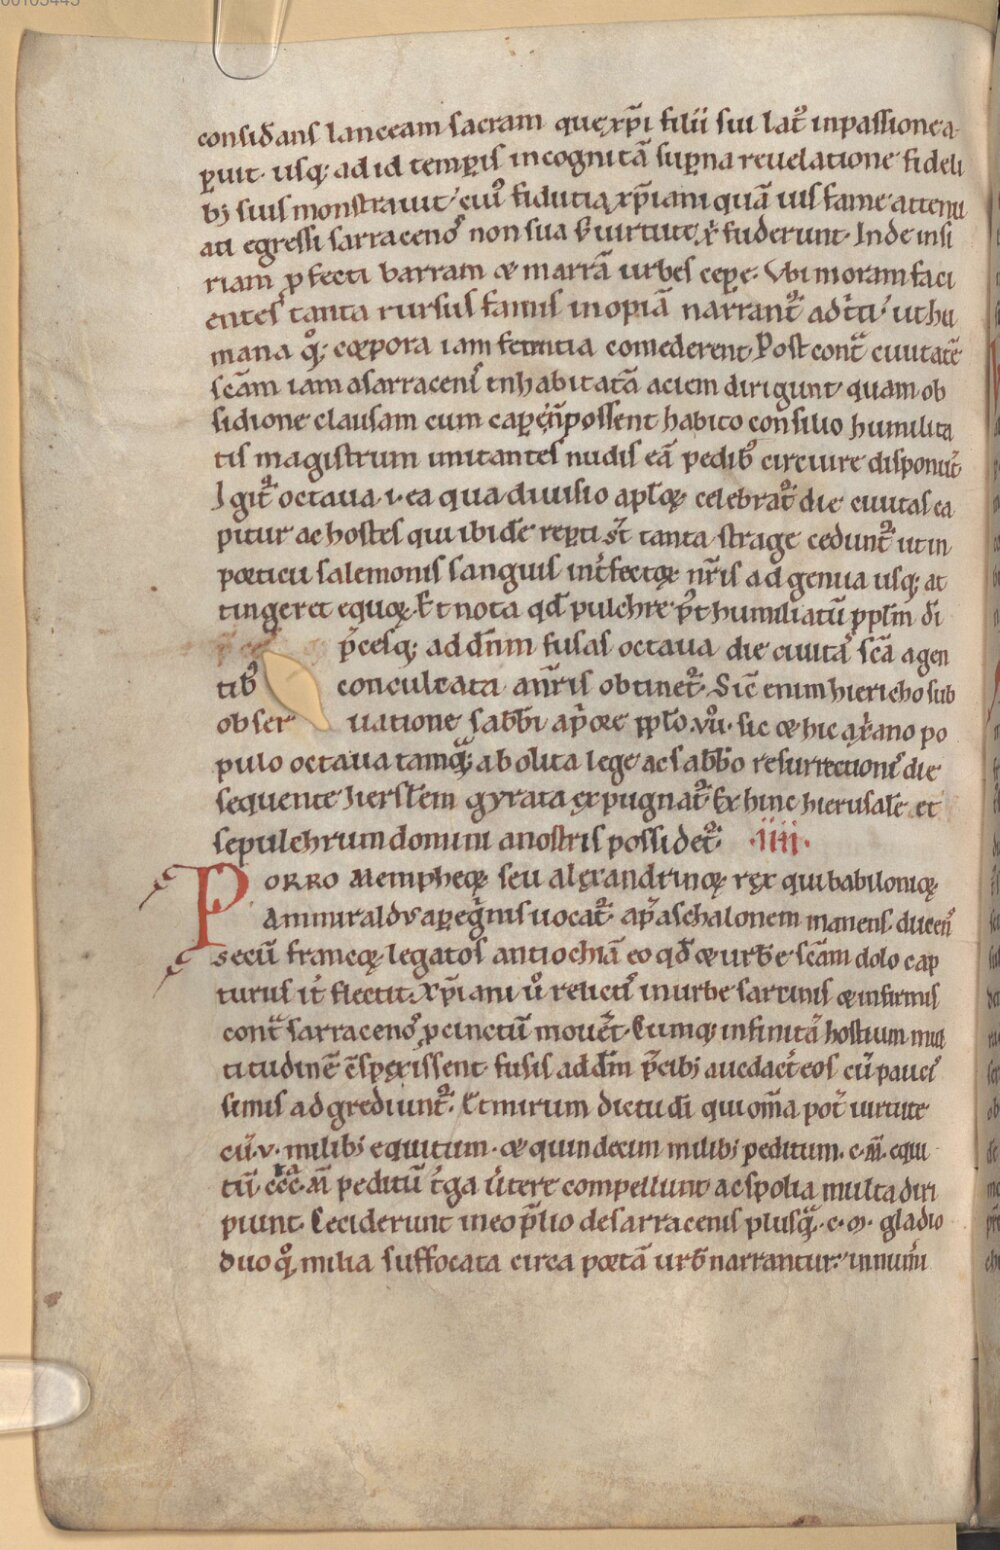 consid̄ans lanceam sacram quę xp̄i filii sui lat᷒ in passione a
ꝑuit. usq; ad id temꝑis incognitā suꝑna reuelatione fideli
b; suis monstrauit. cui᷒ fiducia xp̄iani quā uis fame attenu
ati egressi sarraceno᷒ non sua s; uirtute xp̄i fuderunt. Inde in si
riam ꝓfecti barram & marrā urbes ceꝑe. Vbi moram faci
entes tanta rursus famis inopiā narrant᷑ adtriti. ut hu
mana q᷒q; corpora iam fetentia comederent. Post cont̄ ciuitatē
scām iam a sarracenis inhabitatā aciem dirigunt. quam ob
sidione clausam cum caꝑe n̄ possent habito consilio humilita
tis magistrum imitantes nudis eā pedib᷒ circuire disponunt.
Igit᷑ octaua .i. ea qua diuisio apl̄oꝝ celebrat᷑ die ciuitas ca
pitur ac hostes qui ibidē reꝑti st̄ tanta strage cedunt᷑ ut in
porticu salemonis sanguis int̄fectoꝝ nr̄is ad genua usq; at
tingeret equoꝝ. Et nota qd̄ pulchre p᷒t humiliatū ppl̄m d̄i
p̄cesq; ad dn̄m fusas octaua die ciuitas scā a gen
tib᷒ conculcata a nr̄is obtinet᷑. Sic enim hiericho sub
obser uatione sabb̄i a p̄ore ppl̄o. uo᷒. sic & hic a xp̄iano po
pulo octaua tamq̄; abolita lege ac sabb̄o resurrectionis die
sequente hierlem̄ gyrata expugnat᷑. Ex hinc hierusalē et
sepulchrum domini a nostris possidet᷑. .iiii.
PORRO Mempheoꝝ seu alexandrinoꝝ rex qui babilonioꝝ
Ammiraldus a ꝑegrinis uocat᷑. ap̄ aschalonem manens. ducens
secū francoꝝ legatos antiochiā eo qd̄ & urbē scām dolo cap
turus it̄ flectit. Xp̄iani u᷒ relictis in urbe sarcinis & infirmis
cont̄ sarraceno᷒ ꝓcinctū mouet᷑. Cumq; infinitā hostium mul
titudinē c̄spexissent fusis ad dn̄m p̄cib; audact̄ eos cū pauci
simis adgrediunt᷑. Et mirum dictu d̄i qui om̄a pot᷑ uirtute
cū .v. milib; equitum. & quindecim milib; peditum. c. m̄. equi
tū. cccc. m̄ peditū t̄ga u̇tere compellunt ac spolia multa diri
piunt. Ceciderunt in eo p̄lio de sarracenis plusq̄. c. m. gladio
duo q᷒q; milia suffocata circa portā urb̄ narrantur. innum̄i